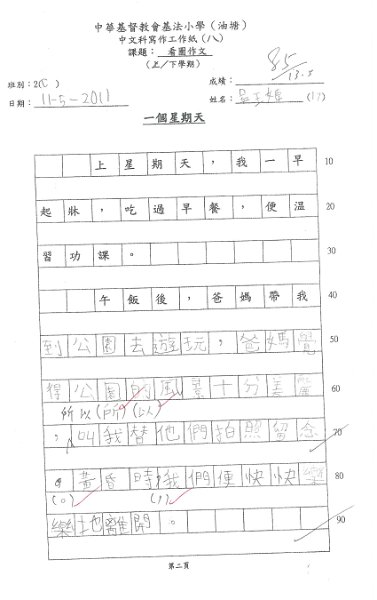 中華基督教會基法小學（油塘）
中文科寫作工作紙（八）
課題：看圖作文
（上／下學期）
班別：2(C)
成績：85
13.5
日期：11-5-2011
姓名： (17)
一個星期天
上星期天，我一早 10
起牀，吃過早餐，便溫 20
習功課。 30
午飯後，爸媽帶我 40
到公園去遊玩，爸媽覺 50
得公園的風景十分美麗 60
所以(所)(以)
，叫我替他們拍照留念 70
。黃昏時，我們便快快樂 80
(。) (，)
樂地離開。 90
第二頁